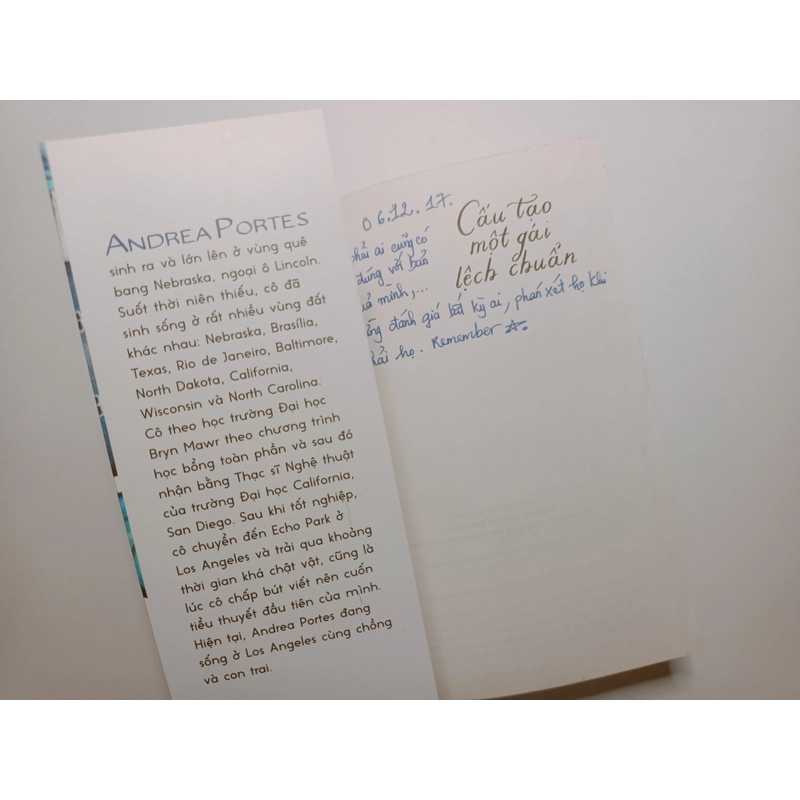 ANDREA PORTES
sinh ra và lớn lên ở vùng quê
bang Nebraska, ngoại ô Lincoln.
Suốt thời niên thiếu, cô đã
sinh sống ở rất nhiều vùng đất
khác nhau: Nebraska, Brasília,
Texas, Rio de Janeiro, Baltimore,
North Dakota, California,
Wisconsin và North Carolina.
Cô theo học trường Đại học
Bryn Mawr theo chương trình
học bổng toàn phần và sau đó
nhận bằng Thạc sĩ Nghệ thuật
của trường Đại học California,
San Diego. Sau khi tốt nghiệp,
cô chuyển đến Echo Park ở
Los Angeles và trải qua khoảng
thời gian khá chật vật, cũng là
lúc cô chấp bút viết nên cuốn
tiểu thuyết đầu tiên của mình.
Hiện tại, Andrea Portes đang
sống ở Los Angeles cùng chồng
và con trai.
06.12.17.
Cấu tạo
một gái
lệch chuẩn
ai cũng có
đúng với bản
mình,...
đánh giá bất kỳ ai, phán xét họ khi
họ. Remember